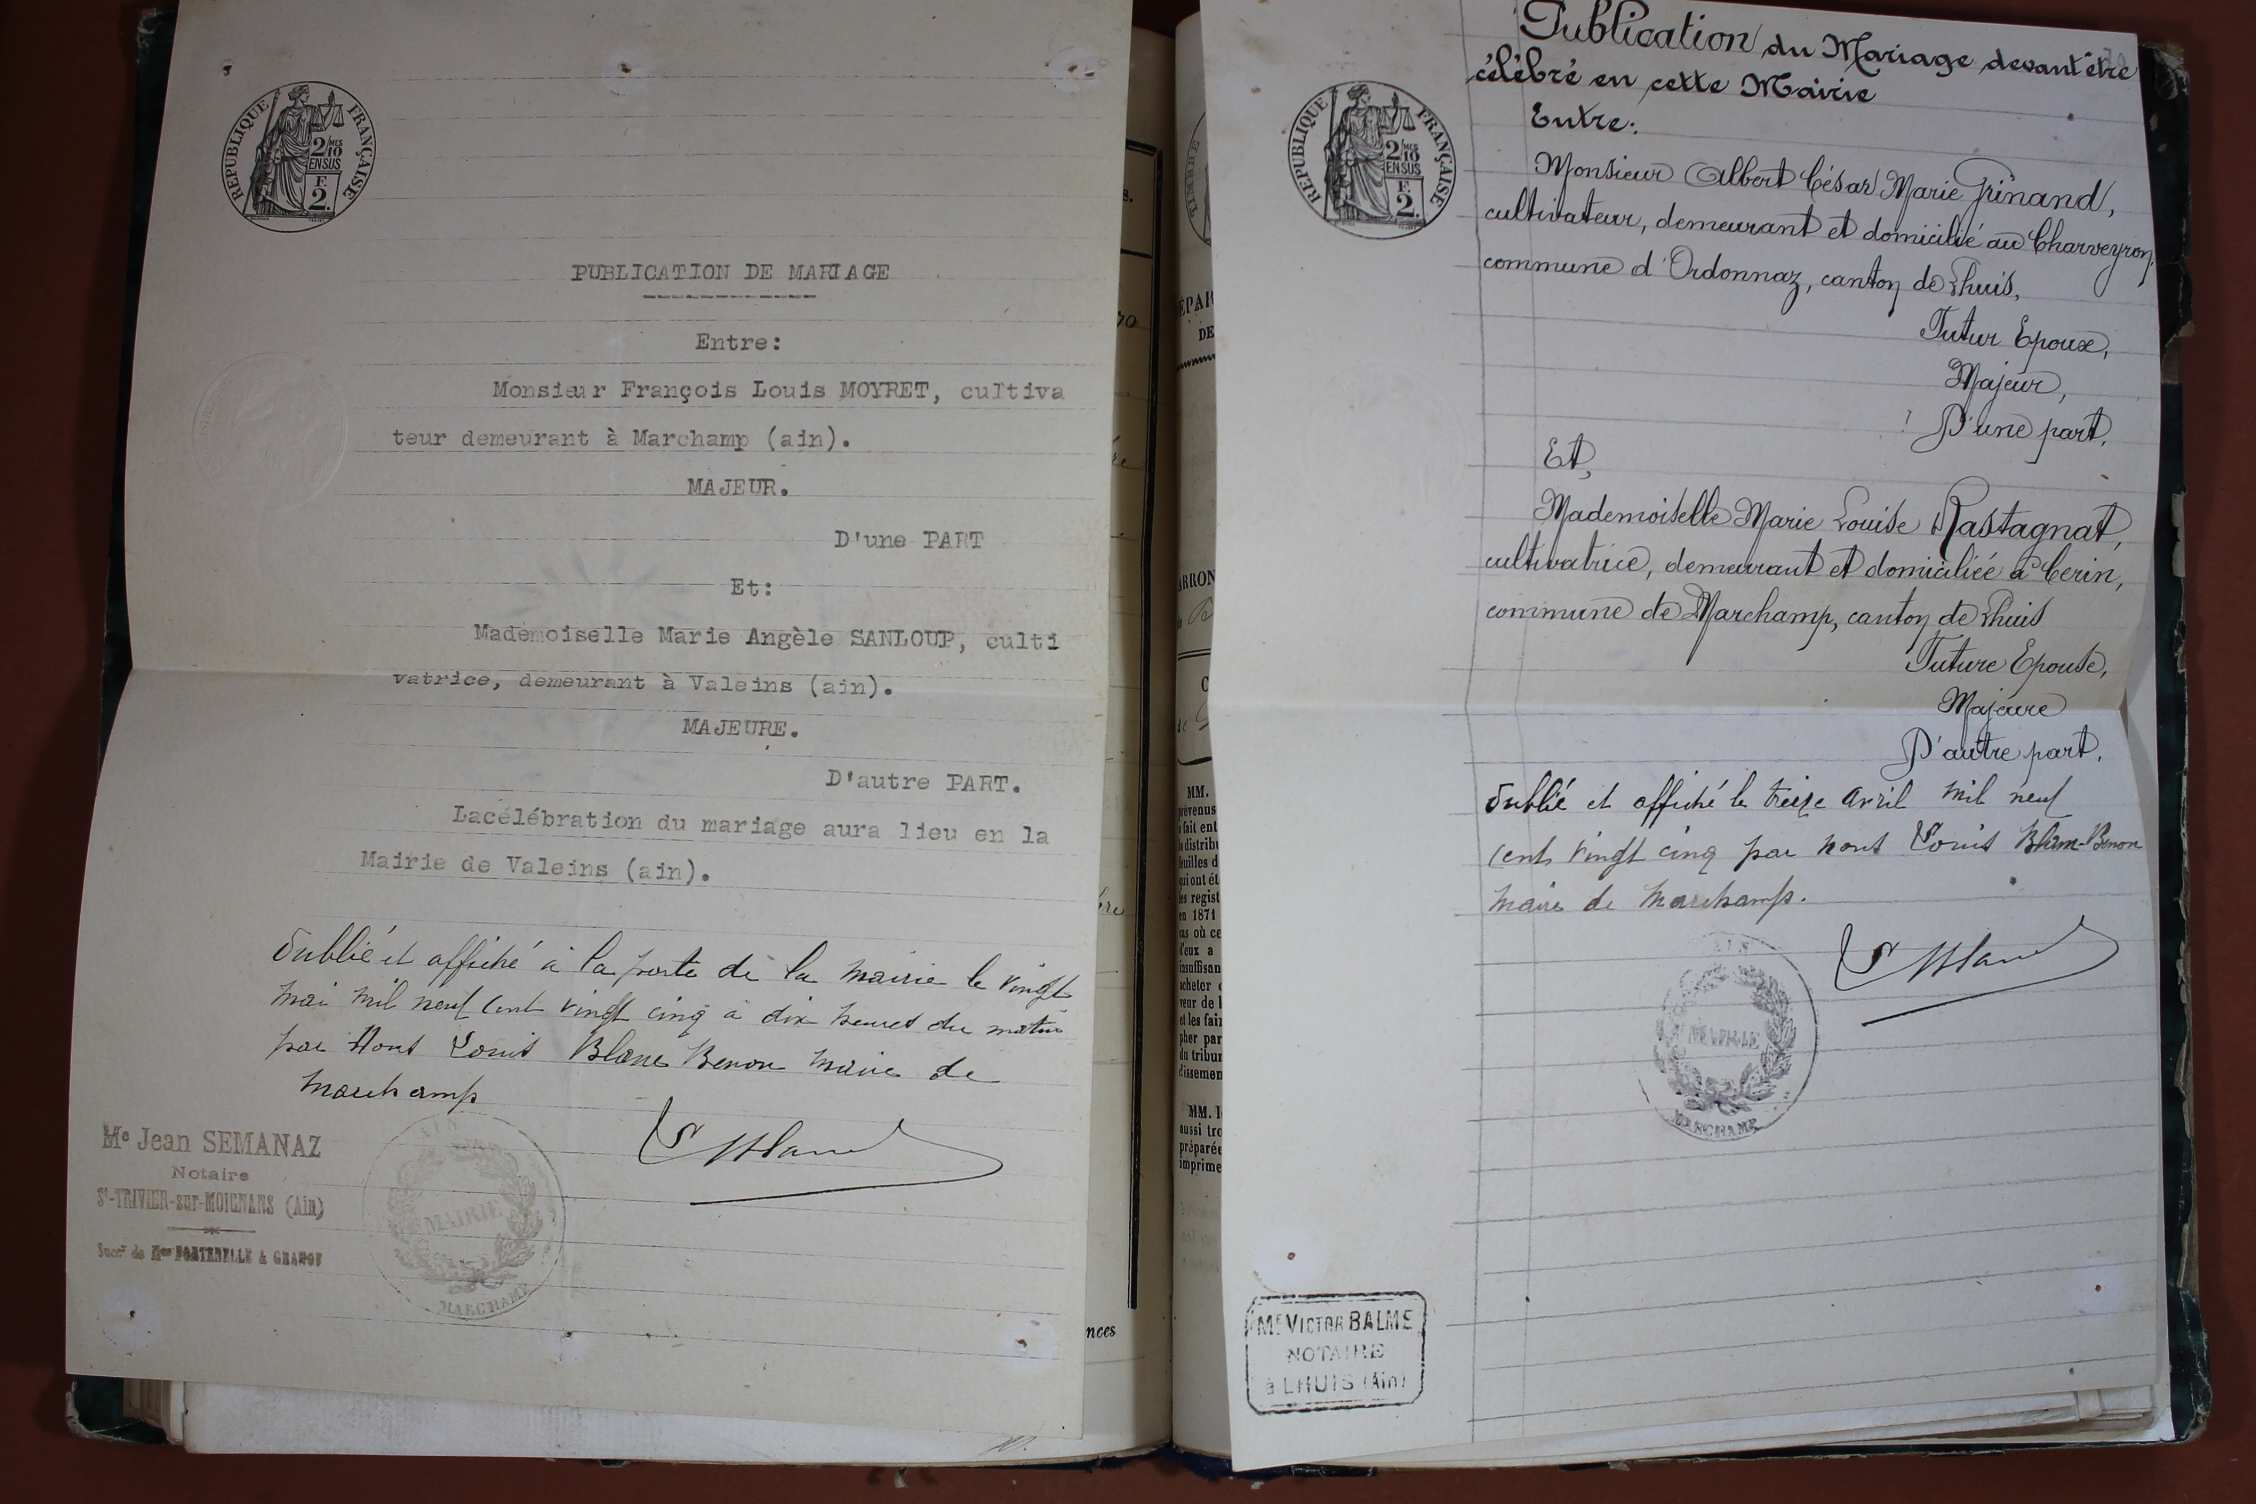 RÉPUBLIQUE FRANÇAISE
2/10 MES
EN SUS
F.
2.
PUBLICATION DE MARIAGE
Entre:
Monsieur François Louis MOYRET, cultiva
teur demeurant à Marchamp (ain).
MAJEUR.
D'une PART
Et:
Mademoiselle Marie Angèle SANLOUP, culti
vatrice, demeurant à Valeins (ain).
MAJEURE.
D'autre PART.
Lacélébration du mariage aura lieu en la
Mairie de Valeins (ain).
Publié et affiché à la porte de la mairie le vingt
mai mil neuf cent vingt cinq à dix heures du matin
par Nous Louis Blanc Benon maire de
Marchamp
L Blanc
Me Jean SEMANAZ
Notaire
St-TRIVIER-sur-MOIGNANS (Ain)
Succr de Mes
AIN
MAIRIE
MARCHAMP
TIMBRE
DE
ARRON
MM.
prévenus
fait ent
distribu
feuilles d
qui ont ét
les regist
en 1871
cas où ce
d'eux a
insuffisan
acheter
veur de l
et les fai
pher par
du tribun
dissemen
MM. l
aussi tro
préparée
imprime
nces
Publication du Mariage devant être
célébré en cette Mairie
RÉPUBLIQUE FRANÇAISE
2/10 MES
EN SUS
F.
2.
Entre:
Monsieur Albert César Marie Grinand,
cultivateur, demeurant et domicilié au Charveyron,
commune d'Ordonnaz, canton de Lhuis,
Futur Epoux,
Majeur,
D'une part,
Et,
Mademoiselle Marie Louise Rastagnat,
cultivatrice, demeurant et domiciliée à Cerin,
commune de Marchamp, canton de Lhuis
Future Epouse,
Majeure
D'autre part.
Publié et affiché le treize avril mil neuf
cent vingt cinq par nous Louis Blanc-Benon
maire de Marchamp.
L Blanc
AIN
MAIRIE
MARCHAMP
Me VICTOR BALME
NOTAIRE
à LHUIS (Ain)